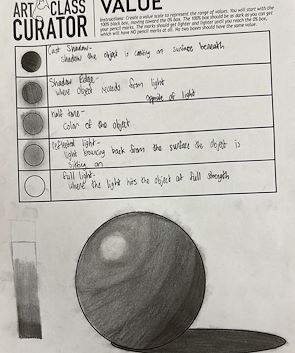 ART CLASS
CURATOR
VALUE
Instructions: Create a value scale to represent the range of values. You will start with the
100% black box, moving toward the 0% box. The 100% box should be as dark as you can get
your pencil marks. The marks should get lighter and lighter until you reach the 0% box,
which will have NO pencil marks at all. No two boxes should have the same value.
Cast Shadow-
Shadow the object is casting on surface beneath
Shadow Edge-
where object recedes from light
opposite of light
half tone-
Color of the object
reflected light-
light bouncing back from the surface the object is
sitting on
full light-
where the light hits the object at full strength